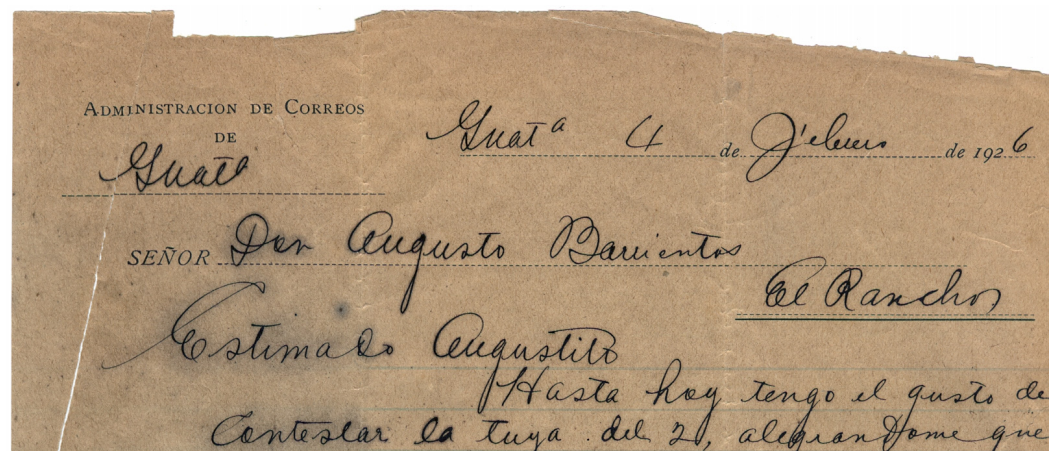 ADMINISTRACION DE CORREOS
DE
Guatª
Guatª 4 de Febrero de 1926
SEÑOR Don Augusto Barrientos
El Rancho
Estimado Augustito
Hasta hoy tengo el gusto de
Contestar la tuya del 2, alegrandome que